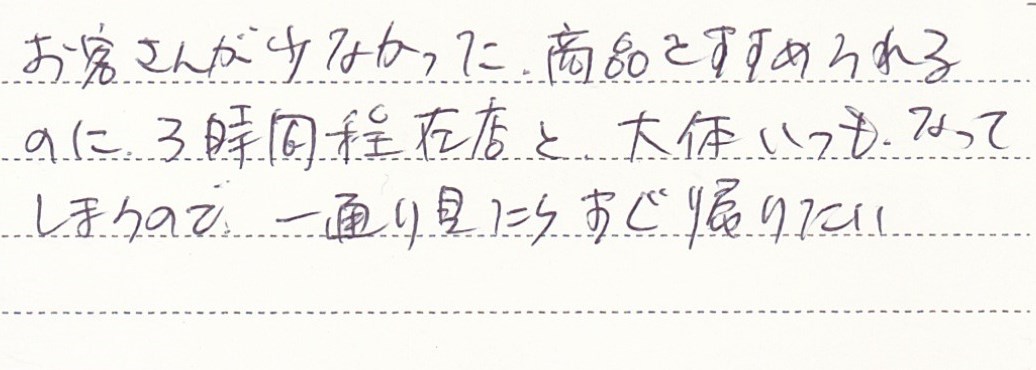 お客さんが少なかった。商品をすすめられる
のに、3時間程在店と、大体いつも、なって
しまうので、一通り見たらすぐ帰りたい